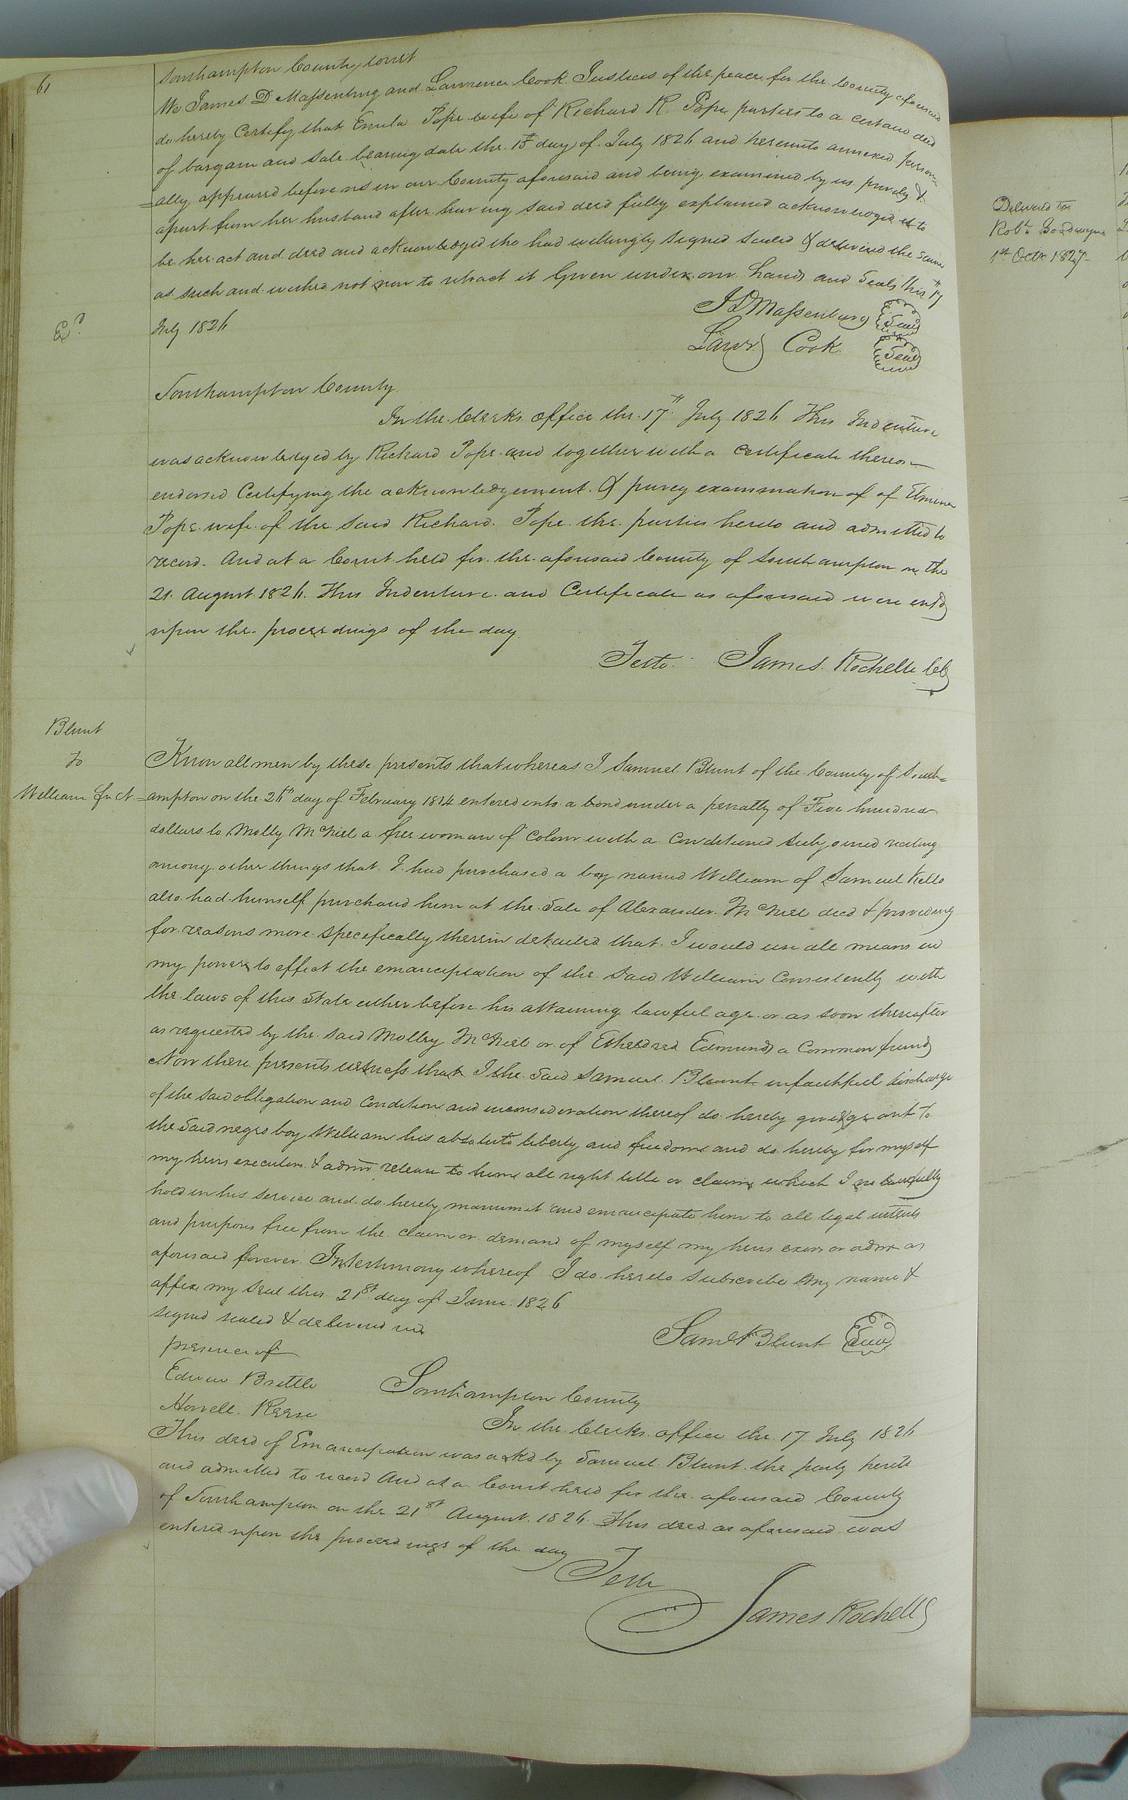 61
Southampton County towit
We James D Massenburg and Lawrence Cook Justices of the peace for the County aforesaid
do hereby Certify that Emila Pope wife of Richard R. Pope parties to a certain deed
of bargain and sale bearing date the 15th day of July 1826 and hereunto annexed person=
=ally appeared before us in our County aforesaid and being examined by us privily &
apart from her husband after having said deed fully explained acknowledged it to
be her act and deed and acknowledged she had willingly signed sealed & delivered the same
as such and wished not now to retract it Given under our hands and seals this 17th
July 1826
J D Massenburg Seal
Lawr Cook Seal
Exd
Southampton County
In the Clerks office the 17th July 1826 This Indenture
was acknowledged by Richard Pope and together with a certificate thereon
endorsed Certifying the acknowledgement & privey examination of of Elmira
Pope wife of the said Richard Pope the parties hereto and admitted to
record. And at a Court held for the aforesaid County of Southampton on the
21 August 1826. This Indenture and Certificate as aforesaid were entd
upon the proceedings of the day
Teste: James Rochelle Clk
Blunt
to
William McN
Know all men by these presents that whereas I Samuel Blunt of the County of South=
=ampton on the 26th day of February 1814 entered into a bond under a penalty of Five hundred
dollars to Molly McNiel a free woman of colour with a condetioned subjoined reciting
among other things that I had purchased a boy named William of Samuel Kello
also had himself purchased him at the sale of Alexander McNiel decd & providing
for reasons more specefically therein detailed that I would use all means in
my powers to effect the emancipation of the said William Consistently with
the laws of this State either before his attaining lawful age or as soon thereafter
as requested by the said Molley McNiel or of Etheldred Edmunds a Common friend
Now these presents witness that I the said Samuel Blunt in faithful discharge
of the said obligation and condition and in consideration thereof do hereby give & grant to
the said negro boy William his absolute liberty and freedom and do hereby for myself
my heirs executors & admrs release to him all right title or claims which I lawfully
hold in his service and do hereby manumit and emancipate him to all legal intents
and purposes free from the claim or demand of myself my heirs exors or admrs as
aforesaid forever In testimony whereof I do hereto subscribe my name &
affix my seal this 21st day of June 1826
signed sealed & delivered in
presence of
Saml Blunt Seal
Edwin Brittle
Howell
Southampton County
In the Clerks office the 17 July 1826
This deed of Emancipation was ackd by Samuel Blunt the party hereto
and admitted to record And at a Court held for the aforesaid County
of Southampton on the 21st August 1826 This deed as aforesaid was
entered upon the proceedings of the day
Teste
James Rochelle
Delivered to
Robt Goodwyn
1st Octr 1827